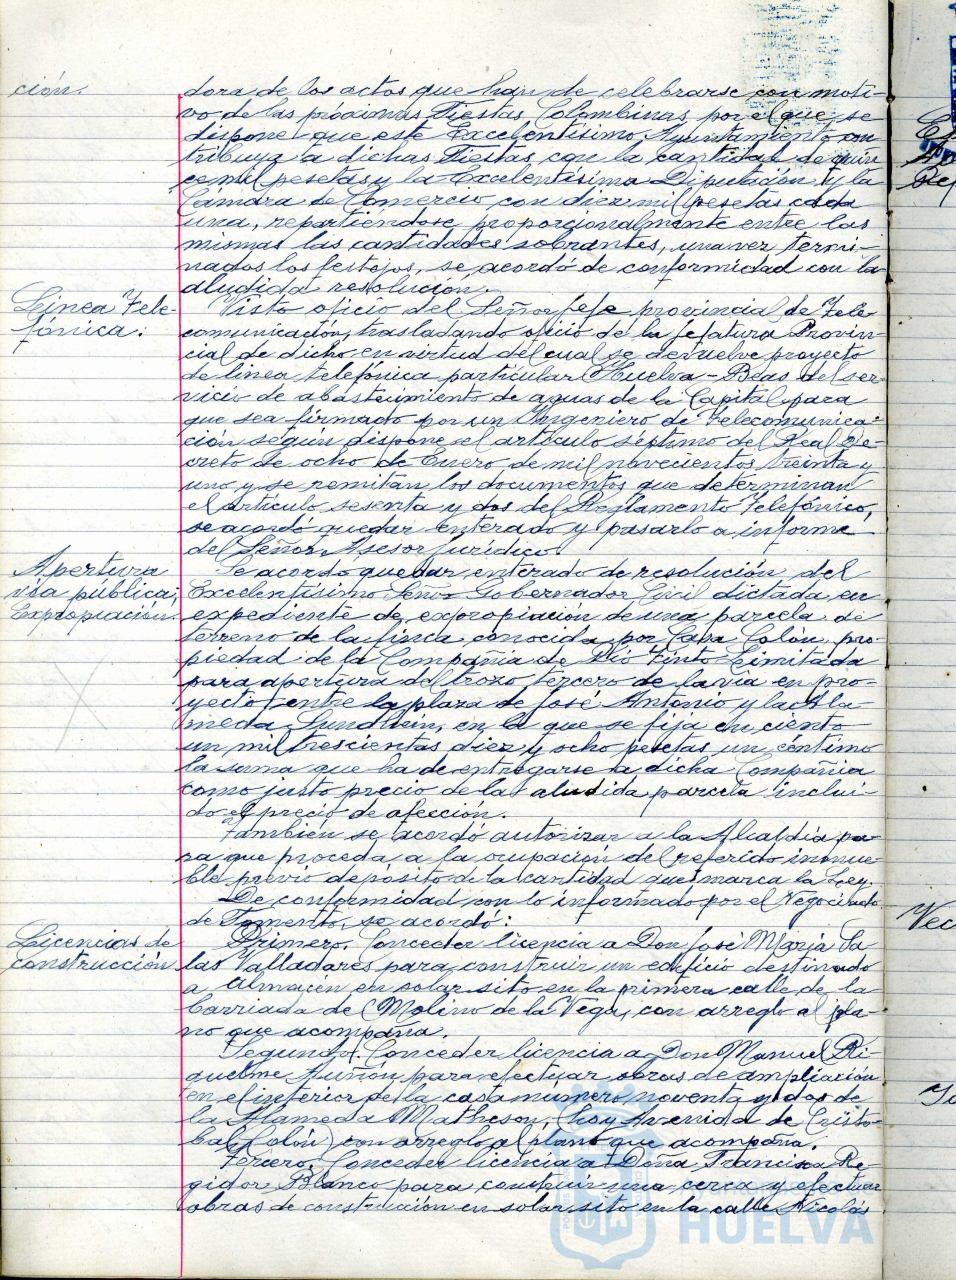 ción.
dora de los actos que han de celebrarse con moti-
vo de las próximas Fiestas Colombinas por el que se
dispone que este Excelentísimo Ayuntamiento con
tribuya a dichas Fiestas con la cantidad de quin
ce mil pesetas y la Excelentísima Diputación y la
Cámara de Comercio con diez mil pesetas cada
una, repartiéndose proporcionalmente entre las
mismas las cantidades sobrantes, una vez termi-
nados los festejos, se acordó de conformidad con la
aludida resolución.
Linea Tele-
fónica.
Visto oficio del Señor Jefe provincial de Tele-
comunicación, trasladando oficio de la Jefatura Provin-
cial de dicho en virtud del cual se devuelve proyecto
de linea telefónica particular Huelva-Beas del ser-
vicio de abastecimiento de aguas de la Capital para
que sea firmado por un Ingeniero de Telecomunica-
ción según dispone el artículo séptimo del Real De-
creto de ocho de Enero de mil novecientos treinta y
uno y se remitan los documentos que determinan
el artículo sesenta y dos del Reglamento Telefónico,
se acordó quedar enterado y pasarlo a informe
del Señor Asesor Jurídico.
Apertura
vía pública,
Expropiación.
Se acordó quedar enterado de resolución del
Excelentísimo Señor Gobernador Civil dictada en
expediente de expropiación de una parcela de
terreno de la finca conocida por Casa Colón, pro-
piedad de la Compañía de Rio Tinto Limitada
para apertura del trozo tercero de la vía en pro-
yecto entre la plaza de José Antonio y la Ala-
meda Sundheim, en la que se fija en ciento
un mil trescientas diez y ocho pesetas un céntimo
la suma que ha de entregarse a dicha Compañía
como justo precio de la aludida parcela inclui-
do el precio de afección.
También se acordó autorizar a la Alcaldía pa-
ra que proceda a la ocupación del referido inmue-
ble previo depósito de la cantidad que marca la Ley.
De conformidad con lo informado por el Negociado
de Fomento, se acordó:
Licencias de
construcción
Primero. Conceder licencia a Don José María Sa-
las Valladares para construir un edificio destinado
a almacén en solar sito en la primera calle de la
barriada de Molino de la Vega, con arreglo al pla-
no que acompaña.
Segundo. Conceder licencia a Don Manuel Ri-
quelme Auñón para efectuar obras de ampliación
en el interior de la casa número noventa y dos de
la Alameda Matheson, (hoy Avenida de Cristo-
bal Colón) con arreglo al plano que acompaña.
Tercero. Conceder licencia a Doña Francisca Re-
gidor Blanco para construir una cerca y efectuar
obras de construcción en solar sito en la calle Nicolás
HUELVA